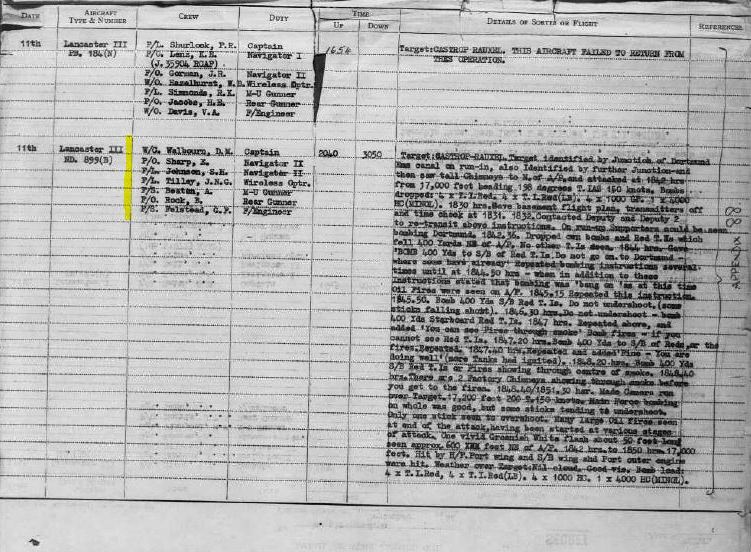 DATE AIRCRAFT TYPE & NUMBER CREW DUTY TIME UP DOWN DETAILS OF SORTIE OR FLIGHT REFERENCES
11th Lancaster III F/L. Shurlock, P.R. Captain 1654 Target:CASTROP RAUXEL. THIS AIRCRAFT FAILED TO RETURN FROM
PB. 184(N) Navigator I THIS OPERATION.
(J.35904 RCAF)
F/O. Gorman, J.R. Navigator II
W/O. Hazelhurst, W.D. Wireless Optr.
F/L. Simmonds, R.K. M-U Gunner
P/O. Jacobs, H.E. Rear Gunner
W/O. Davis, V.A. F/Engineer
11th Lancaster III W/C. Walbourn, D.M. Captain 2040 3050 Target: CASTROP-RAUXEL. Target identified by Junction of Dortmund
ND. 899(B) F/O. Sharp, K. Navigator II Ems canal on run-in, also identified by further Junction and
F/L. Johnson, S.H. Navigator II then saw tall Chimneys to N. of A/P. and attacked at 1842 hrs
F/L. Tilley, J.N.G. Wireless Optr. from 17,000 feet heading 198 degrees T. IAS 150 knots. Bombs
F/S. Beaton, A. M-U Gunner dropped: 4 x T.I.Red, 4 x T.I.Red(LB). 4 x 1000 GP. 1 x 4000
F/O. Rock, B. Rear Gunner HC(MINOL). 1830 hrs. Were in exact flight plan. Transmitters off
F/S. Felstead, G.F. F/Engineer and time check at 1831. 1832. Contacted Deputy and Deputy 2
to re-transit above instructions. On run-up Supporters could be seen
bombing Dortmund. Dropped on bombs and Red T.Is which
fell 400 Yards NE of A/P. No other T.Is seen. 1844 hrs. Sent
'BOMB 400 Yds to S/B of Red T.Is. Do not go on to Dortmund -
where some have already' Repeated bombing instructions several
times until at 1844.50 hrs - when in addition to these
instructions stated that bombing was 'bang on' as at this time
Oil Fires were seen on A/P. 1845.15 Repeated this instruction.
1845.50. Bomb 400 Yds S/B Red T.Is. Do not undershoot. (some
sticks falling short). 1846.30 hrs. Do not undershoot - bomb
400 Yds Starboard Red T.Is. 1847 hrs. Repeated above, and
added 'You can see Fires through smoke' Bomb fires - if you
cannot see Red T.Is. 1847.20 hrs. Bomb 400 Yds to S/B of Reds, or the
fires. Repeated. 1847.40 hrs. Repeated and added 'Fine - You are
doing well' (more Tanks had ignited). 1848.20 hrs. Bomb 400 Yds
S/B Red T.Is or Fires showing through centre of smoke. 1848.40
hrs. There are 2 Factory Chimneys showing through smoke before
you get to the fires. 1848.40/1851.30 hrs. Made Camera run
over Target. 17,200 feet 200 T. 150 knots. Main Force bombing
on whole was good, but some sticks tending to undershoot.
Only one stick seen to overshoot. Many large Oil fires seen
at end of the attack, having been started at various stages
of attack. One vivid Greenish White flash about 50 feet
seen approx. 600 feet NE of A/P. 1842 hrs. to 1850 hrs. 17,000
feet. Hit by H/F. Port wing and S/B wing and Port outer engine
were hit. Weather over Target: Nil cloud. Good vis. Bomb load:
4 x T.I.Red, 4 x T.I.Red(LB). 4 x 1000 HC. 1 x 4000 HC(MINOL).
APPENDIX